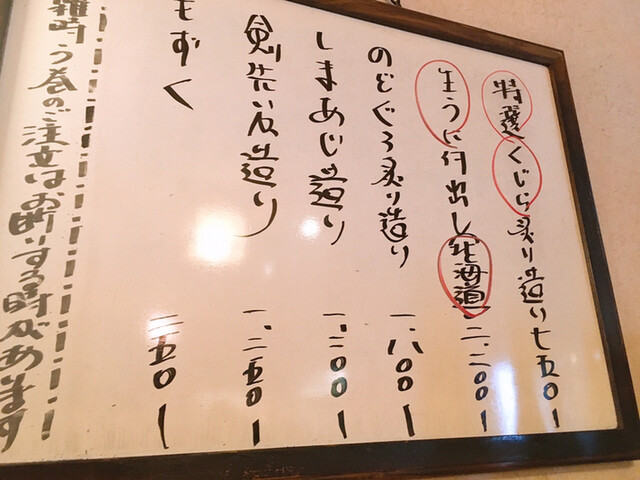 特選くじら炙り造り七五〇ー
生うに付出し北海道二、二〇〇ー
のどぐろ炙り造り一、八〇〇ー
しまあじ造り一、二〇〇ー
剣先いか造り一、二五〇ー
もずく三五〇ー
雑時う巻のご注文はお断りする時があります